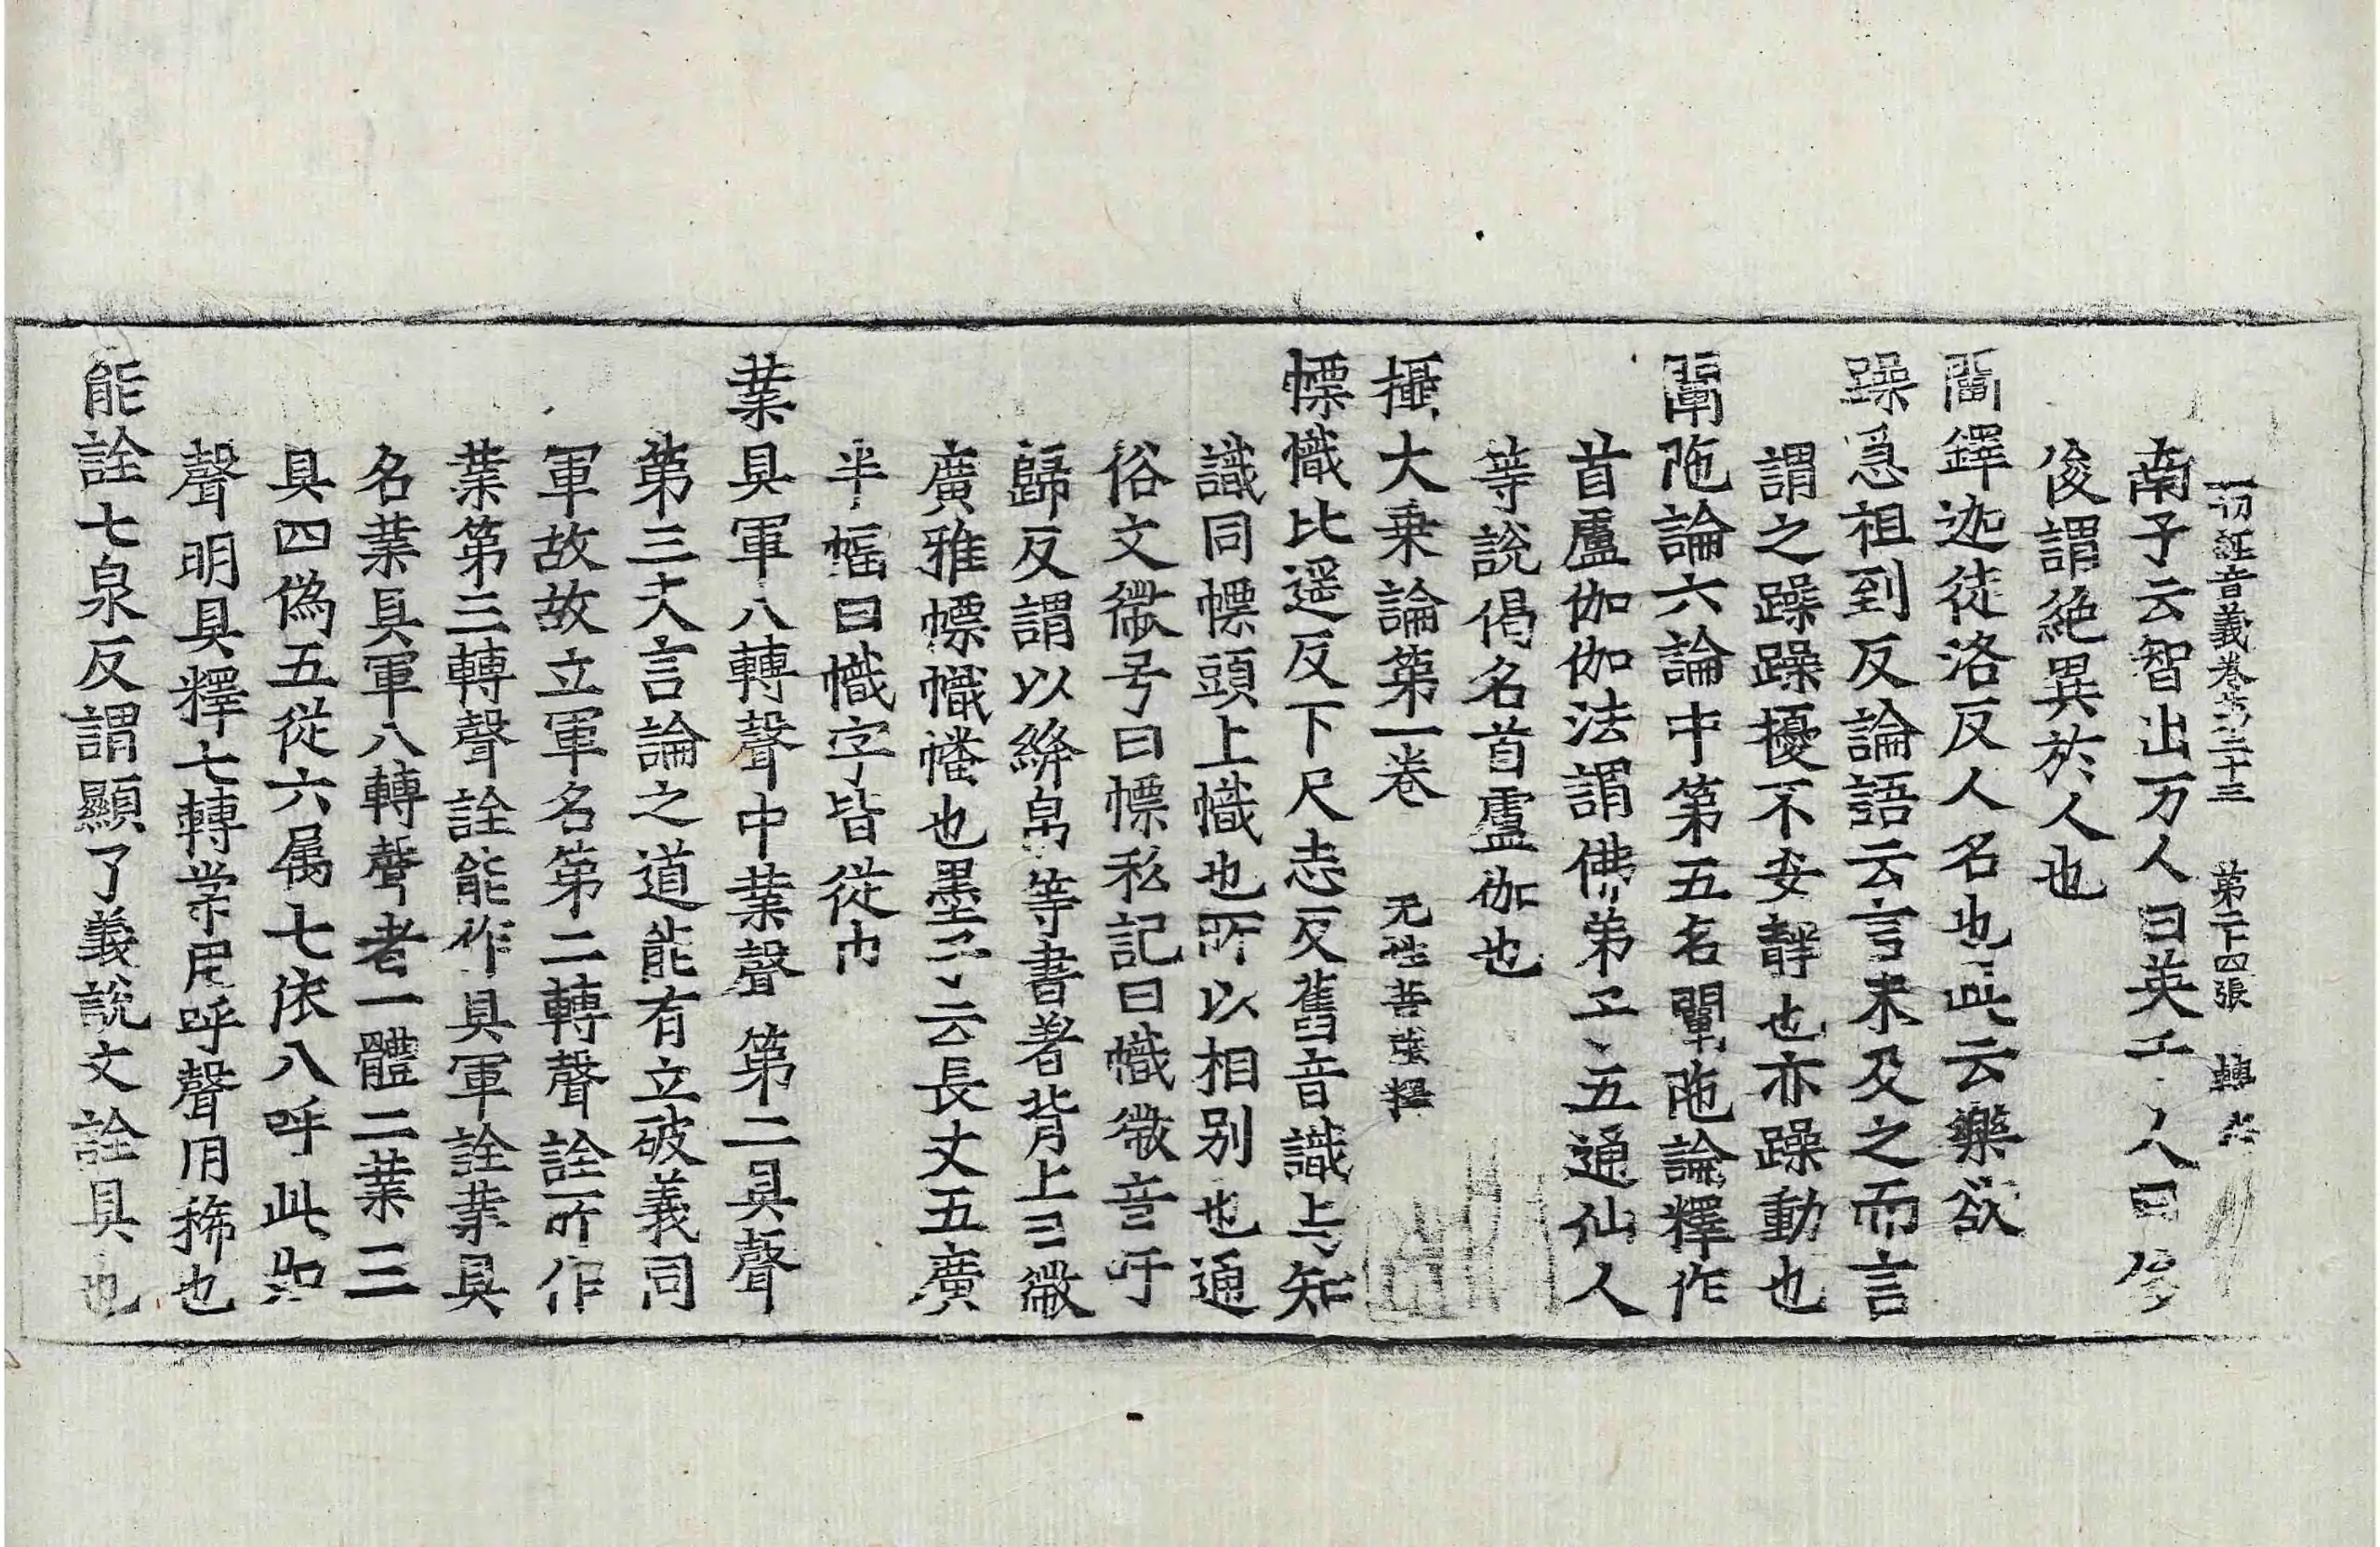 一切経音義卷第二十三 第二十四張 轉
南子云智出万人曰英千人曰俊
俊謂絶異於人也
閻鐸迦徒洛反人名也此云樂欲
躁急祖到反論語云言未及之而言
謂之躁躁擾不安靜也亦躁動也
闡陁論六論中第五名闡陁論釋作
首盧伽伽法謂佛弟子五通仙人
等說偈名首盧伽也
攝大乗論第一卷 无性菩薩釋
幖幟比遥反下尺志反舊音識與知
識同幖頭上幟也所以相別也通
俗文徽号曰幖私記曰幟徽音呼
歸反謂以絳帛等書著背上曰徽
廣雅幖幟幡也墨子云長丈五廣
半幅曰幟字皆從巾
業具軍八轉聲中業聲第二具聲
第三夫言論之道能有立破義同
軍故故立軍名第二轉聲詮所作
業第三轉聲詮能作具軍詮業具
名業具軍八轉聲者一體二業三
具四爲五從六属七依八呼此如
聲明具釋七轉常用呼聲用稀也
能詮七泉反謂顯了義說文詮具也